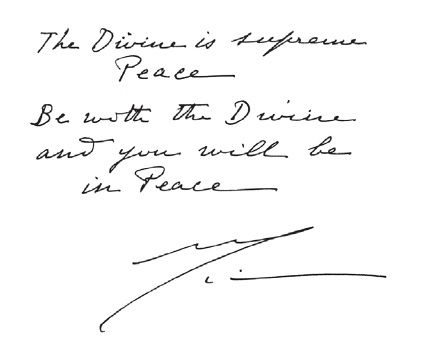 The Divine is supreme
Peace
Be with the Divine
and you will be
in Peace